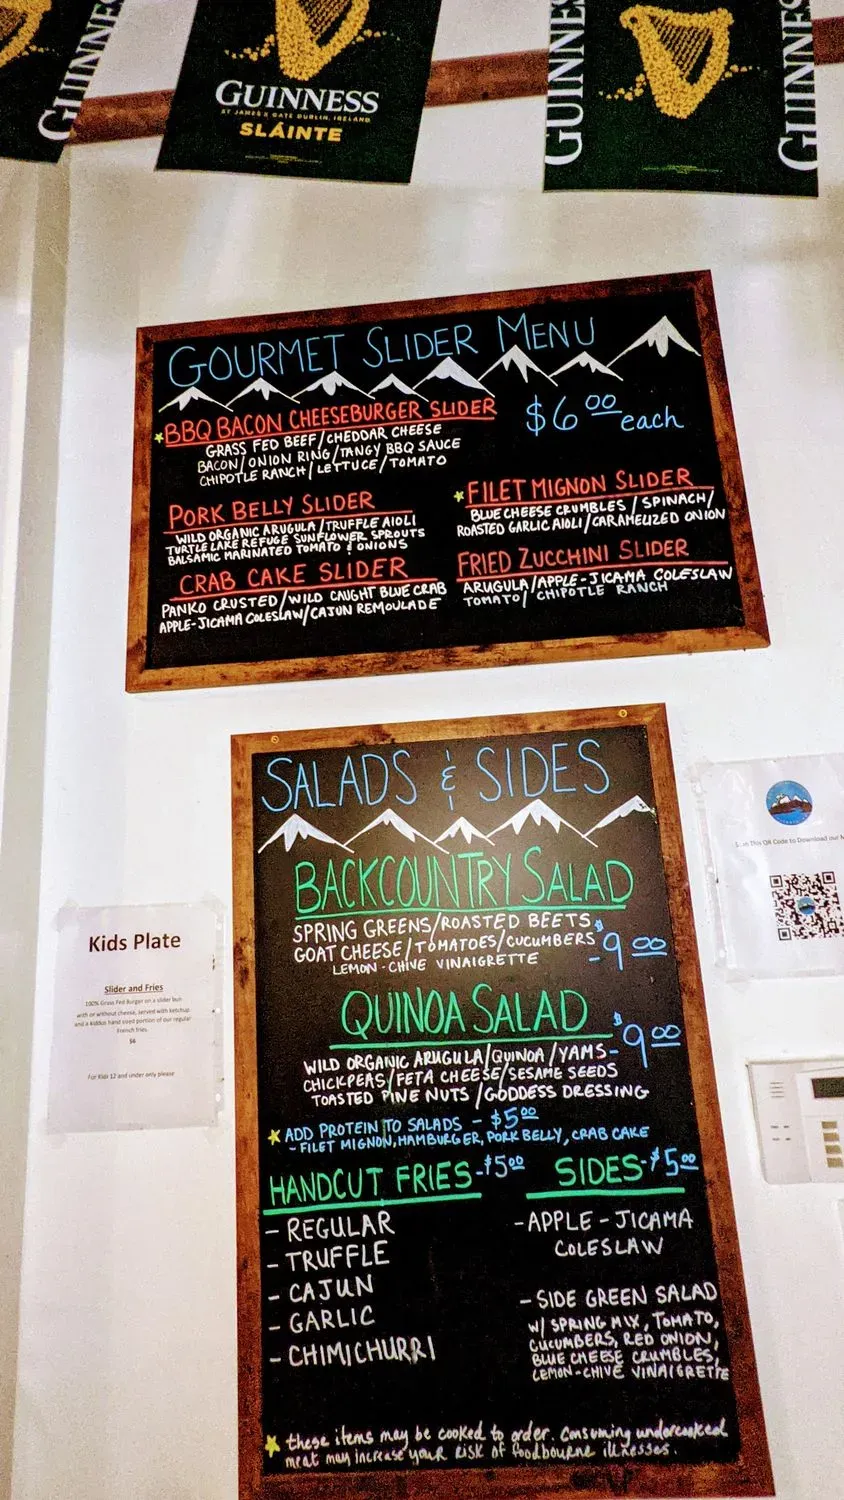 GUINNESS
GUINNESS
ST JAMES'S GATE DUBLIN, IRELAND
SLÁINTE
GUINNESS
GUINNESS
GOURMET SLIDER MENU
$6 00 each
BBQ BACON CHEESEBURGER SLIDER
GRASS FED BEEF/CHEDDAR CHEESE
BACON/ONION RING/TANGY BBQ SAUCE
CHIPOTLE RANCH/LETTUCE/TOMATO
PORK BELLY SLIDER
WILD ORGANIC ARUGULA/TRUFFLE AIOLI
TURTLE LAKE REFUGE SUNFLOWER SPROUTS
BALSAMIC MARINATED TOMATO & ONIONS
CRAB CAKE SLIDER
PANKO CRUSTED/WILD CAUGHT BLUE CRAB
APPLE-JICAMA COLESLAW/CAJUN REMOULADE
FILET MIGNON SLIDER
BLUE CHEESE CRUMBLES/SPINACH/
ROASTED GARLIC AIOLI/CARAMELIZED ONION
FRIED ZUCCHINI SLIDER
ARUGULA/APPLE-JICAMA COLESLAW
TOMATO/CHIPOTLE RANCH
SALADS & SIDES
BACKCOUNTRY SALAD
SPRING GREENS/ROASTED BEETS
GOAT CHEESE/TOMATOES/CUCUMBERS - $9 00
LEMON-CHIVE VINAIGRETTE
QUINOA SALAD
WILD ORGANIC ARUGULA/QUINOA/YAMS - $9 00
CHICKPEAS/FETA CHEESE/SESAME SEEDS
TOASTED PINE NUTS/GODDESS DRESSING
ADD PROTEIN TO SALADS - $5 00
- FILET MIGNON, HAMBURGER, PORK BELLY, CRAB CAKE
HANDCUT FRIES - $5 00
- REGULAR
- TRUFFLE
- CAJUN
- GARLIC
- CHIMICHURRI
SIDES - $5 00
- APPLE-JICAMA
COLESLAW
- SIDE GREEN SALAD
W/ SPRING MIX, TOMATO,
CUCUMBERS, RED ONION,
BLUE CHEESE CRUMBLES,
LEMON-CHIVE VINAIGRETTE
these items may be cooked to order. Consuming undercooked
meat may increase your risk of foodbourne illnesses.
Kids Plate
Slider and Fries
100% Grass Fed Burger on a slider bun
with or without cheese, served with ketchup
and a kiddos hand sized portion of our regular
French fries.
$6
For Kids 12 and under only please
Scan This QR Code to Download our